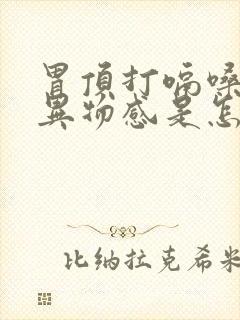 胃頂打嗝嗓
異物感是怎
比纳拉克希米